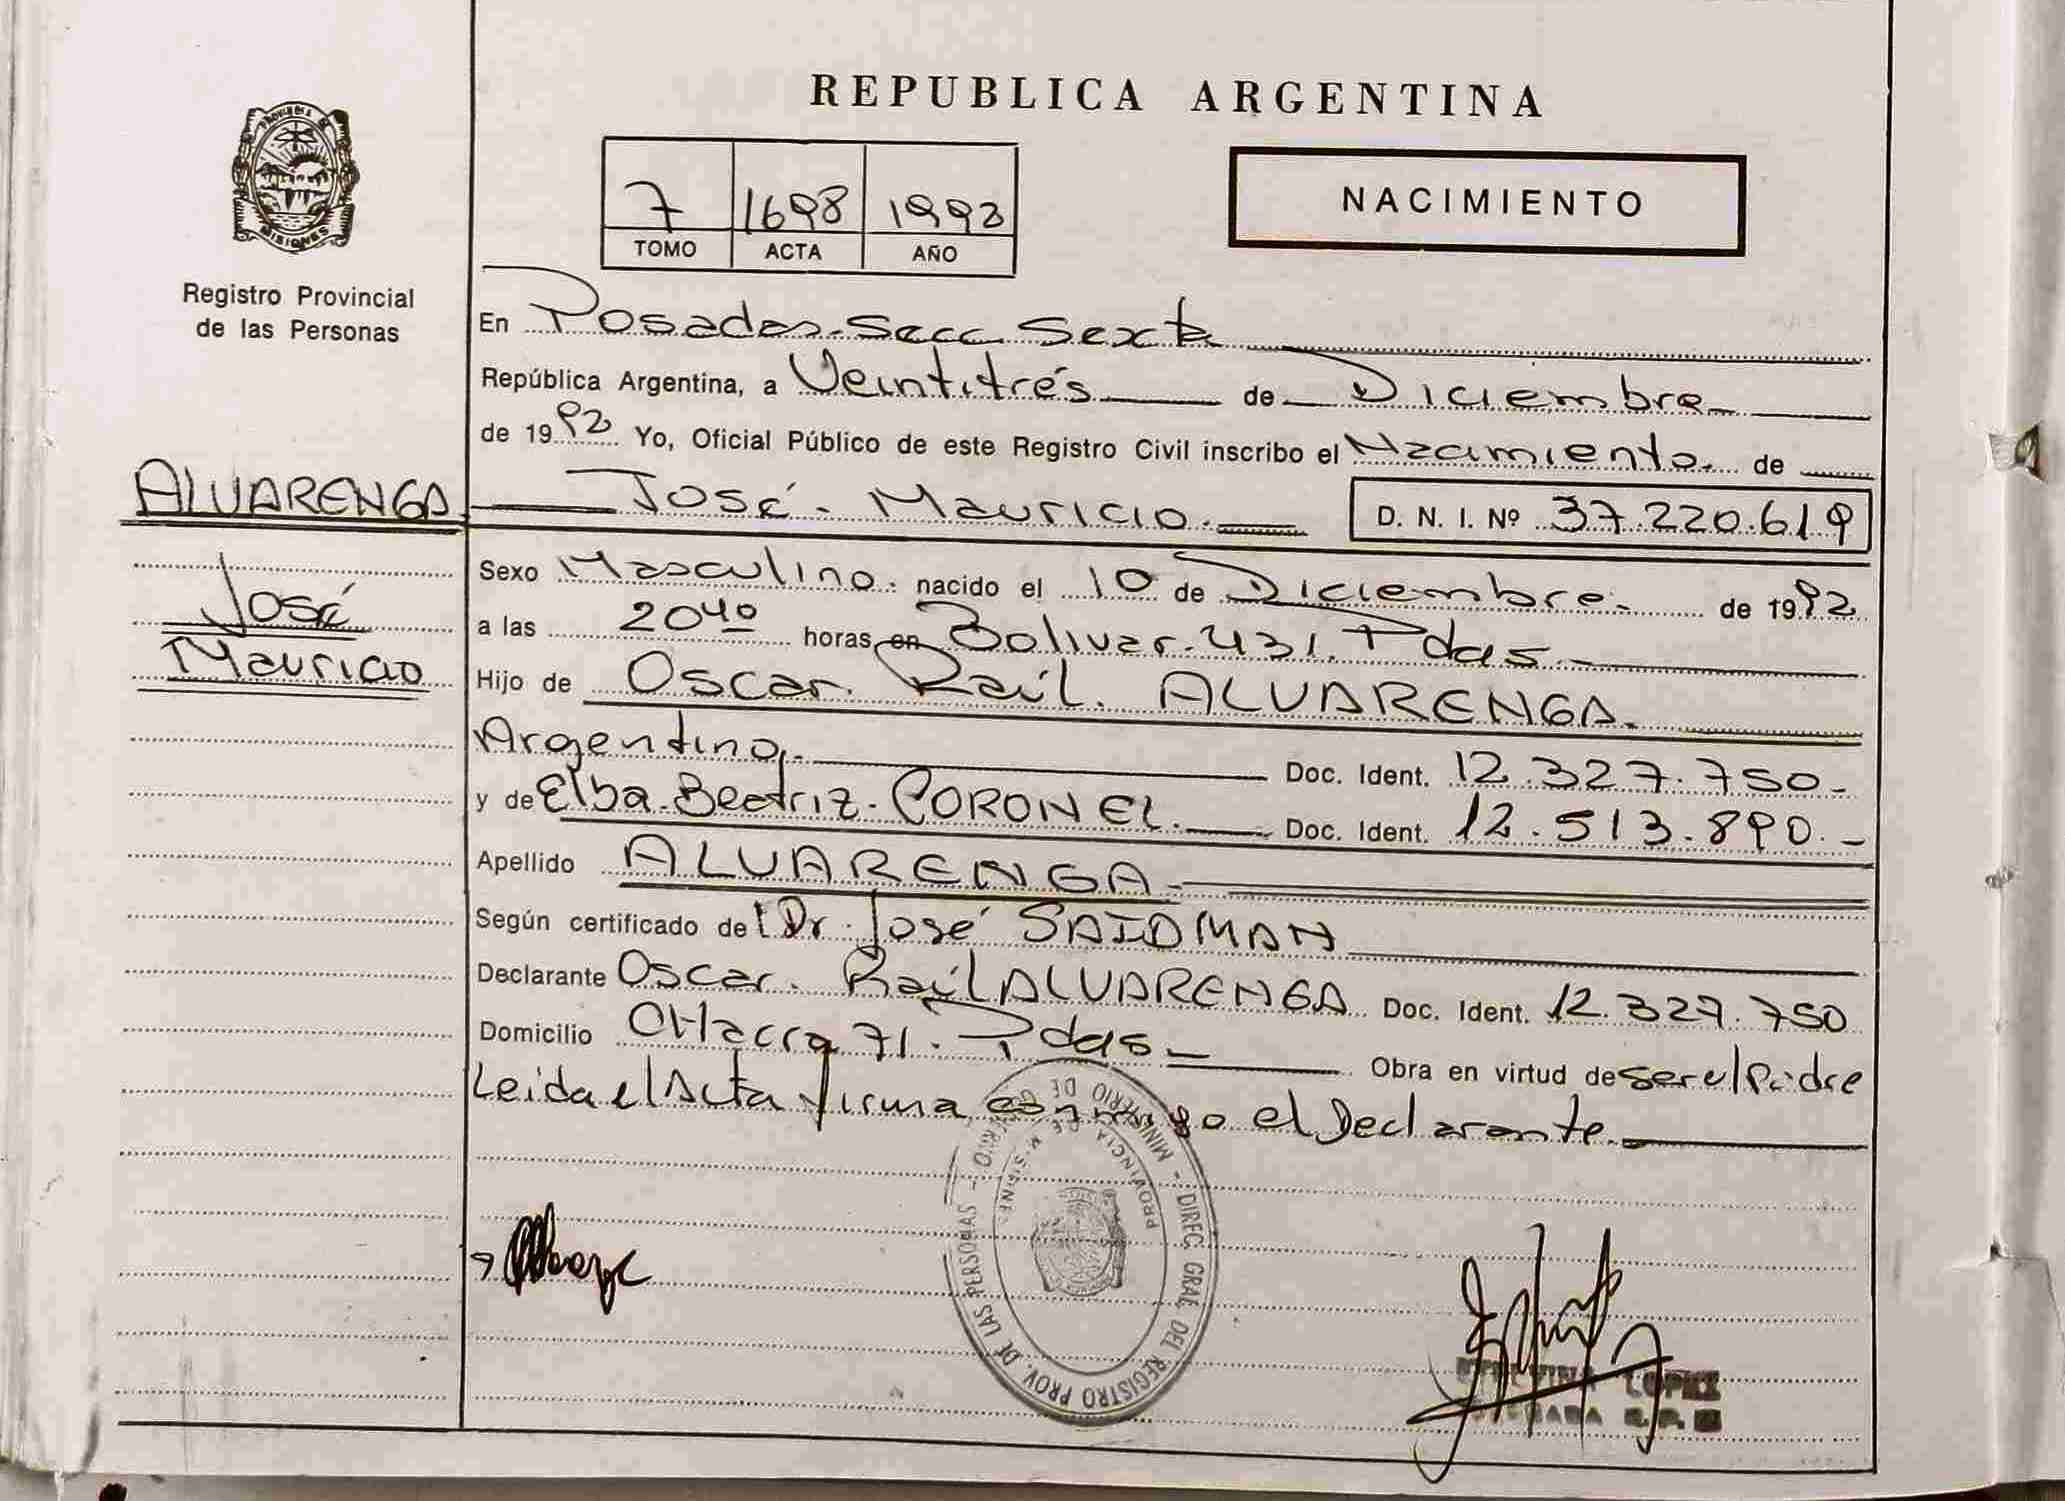 REPUBLICA ARGENTINA
7 1698 1992
TOMO ACTA AÑO
NACIMIENTO
MISIONES
Registro Provincial
de las Personas
En Posadas. Secc. Sexta
República Argentina, a Veintitrés de Diciembre
de 1992 Yo, Oficial Público de este Registro Civil inscribo el Nacimiento. de
ALVARENGA. José. Mauricio. D. N. I. Nº 37.220.619
José
Mauricio
Sexo Masculino. nacido el 10 de Diciembre. de 1992
a las 20 40 horas en Bolivar. 431. Pdas.
Hijo de Oscar. Raúl. ALVARENGA.
Argentino. Doc. Ident. 12.327.750-
y de Elba. Beatriz. CORONEL. Doc. Ident. 12.513.890.-
Apellido ALVARENGA
Según certificado del Dr. José SAIDMAN
Declarante Oscar. Raúl ALVARENGA Doc. Ident. 12.327.750
Domicilio 71. Pdas. Obra en virtud de ser el Padre
Leida el Acta firma conmigo el Declarante.
DIREC. GRAL. DEL REGISTRO PROV. DE LAS PERSONAS - MINISTERIO DE GOBIERNO -
PROVINCIA DE MISIONES
LOPEZ